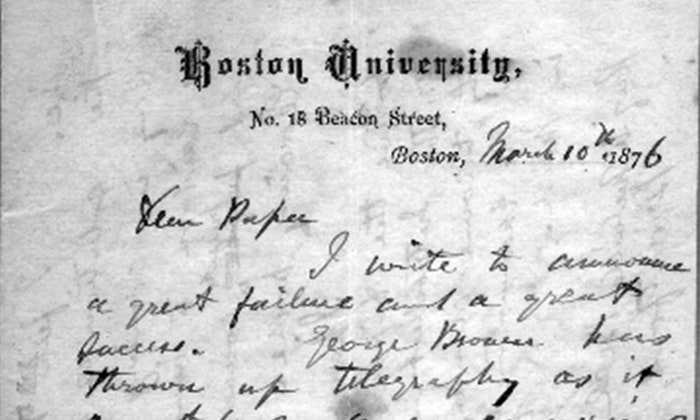 Boston University,
No. 18 Beacon Street,
Boston, March 10th 1876
Dear Papa
I write to announce
a great failure and a great
success. George Brown has
thrown up telegraphy as it